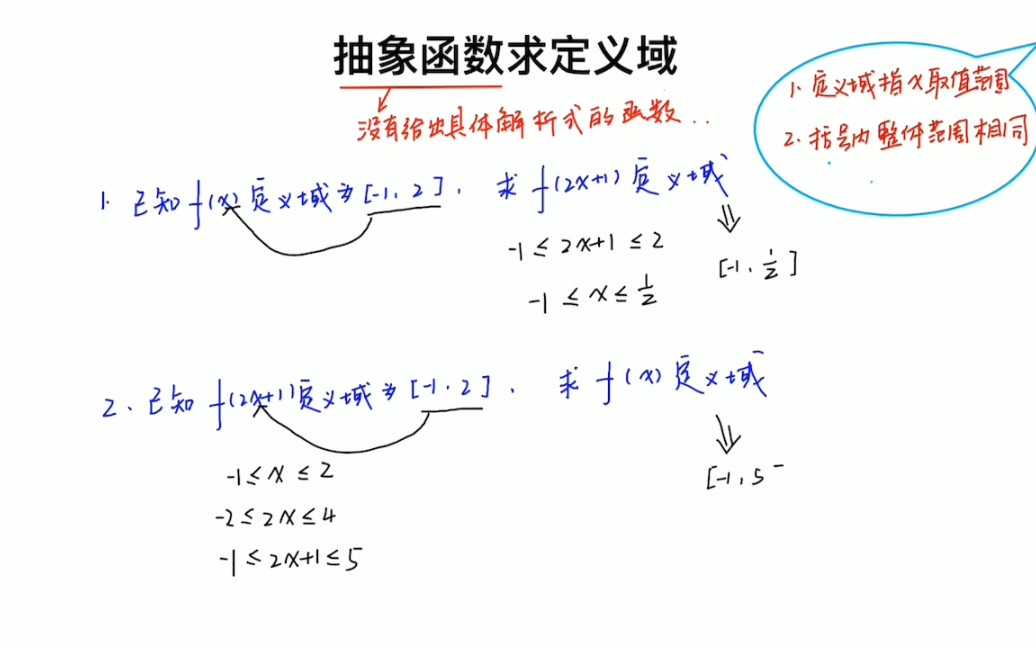 抽象函数求定义域
没有给出具体解析式的函数..
1. 定义域指x取值范围
2. 括号内整体范围相同
1. 已知f(x)定义域为[-1, 2]. 求f(2x+1)定义域
-1≤2x+1≤2
[-1, 1/2]
-1≤x≤1/2
2. 已知f(2x+1)定义域为[-1, 2]. 求f(x)定义域
-1≤x≤2
[-1, 5
-2≤2x≤4
-1≤2x+1≤5